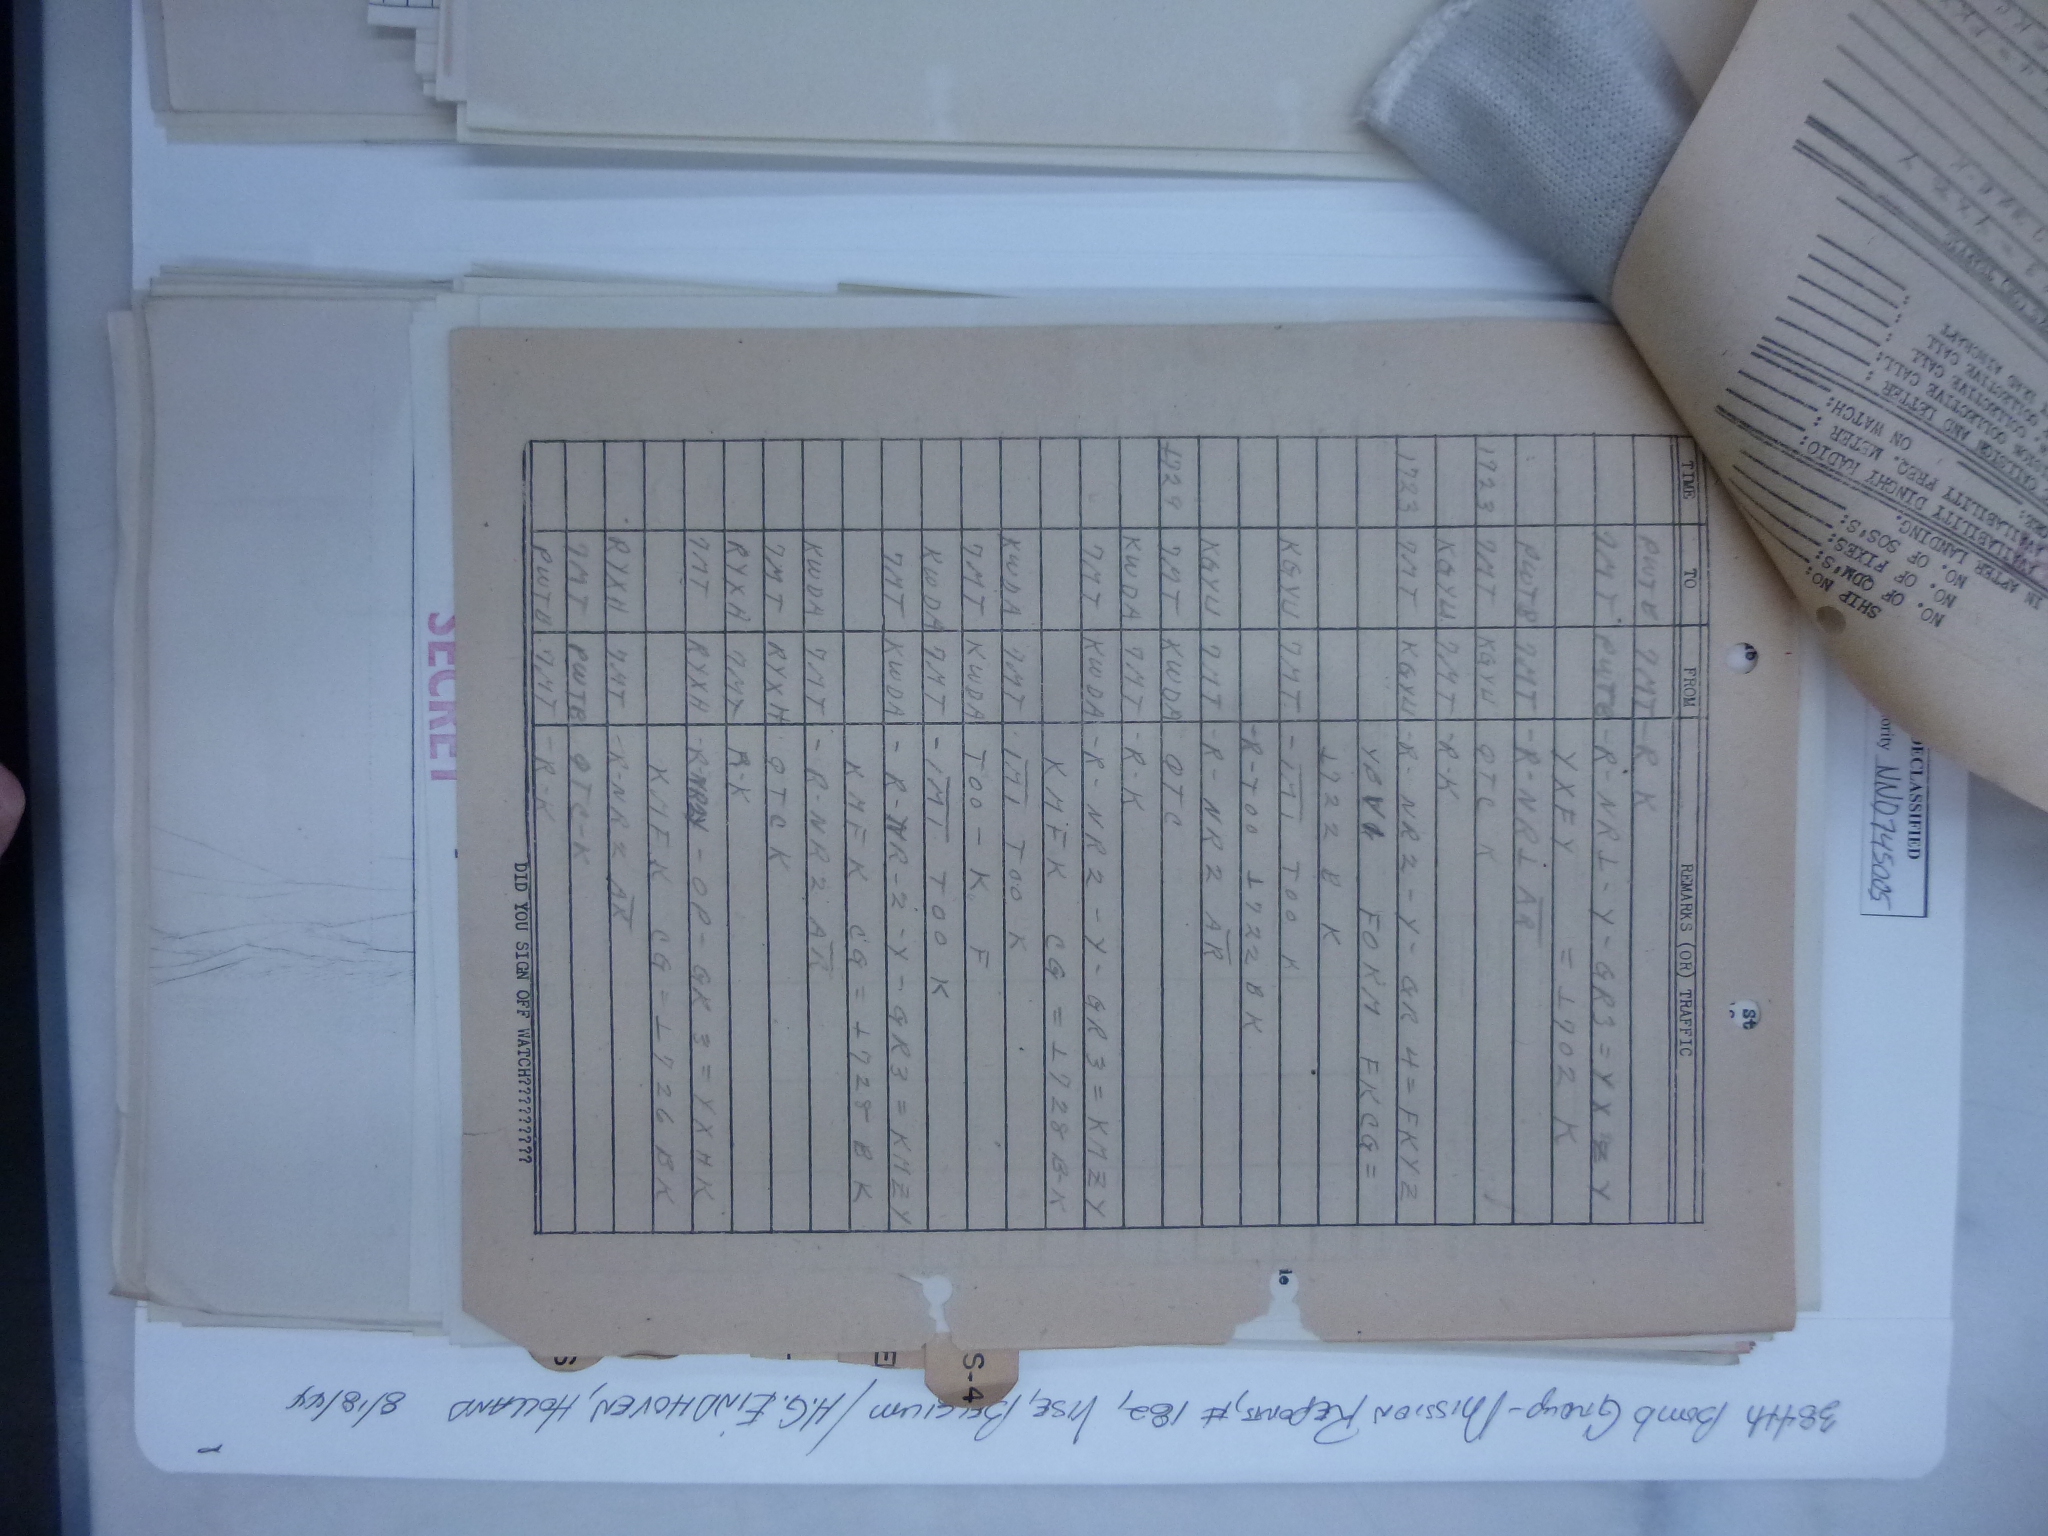 TIME TO FROM REMARKS (OR) TRAFFIC
PWT8 7MT -R K
7MT PWT8 -R-NR1-Y-GR3=YXZY
YXFY = 1702 K
PWT8 7MT -R-NR1 AR
1723 7MT KGYU QTC K
KGYU 7MT -R-K
1723 7MT KGYU -R-NR2-Y-GR4=FKYZ
FOKM FKCG=
1722 B K
KGYU 7MT -IMI TOO K
-R-TOO 1722 B K
KGYU 7MT -R-NR2 AR
1729 7MT KWDA QTC
KWDA 7MT -R-K
7MT KWDA -R-NR2-Y-GR3=KMZY
KMFK CG = 1728 B-K
KWDA 7MT IMI TOO K
7MT KWDA TOO-K F
KWDA 7MT -IMI TOO K
7MT KWDA -R-NR-2-Y-GR3=KMZY
KMFK CG = 1728 B K
KWDA 7MT -R-NR2 AR
7MT RYXH QTC K
RYXH 7MT R-K
7MT RYXH -OP-GR3=YXHK
KMFK CG=1726 BK
RYXH 7MT -R-NR2 AR
7MT PWT8 QTC-K
PWT8 7MT -R-K
DID YOU SIGN OFF WATCH?????????
SECRET
DECLASSIFIED
NND745005
SHIP NO:
NO. OF QDM'S:
NO. OF FIXES:
NO. OF SOS'S:
AFTER LANDING.
DINGHY RADIO:
FREQ. METER:
ON WATCH:
LETTER:
COLLECTIVE CALL:
COLLECTIVE CALL
S-4
384th Bomb Group-Mission Reports, # 182, Vise, Belgium / H.G. Eindhoven, Holland 8/18/44